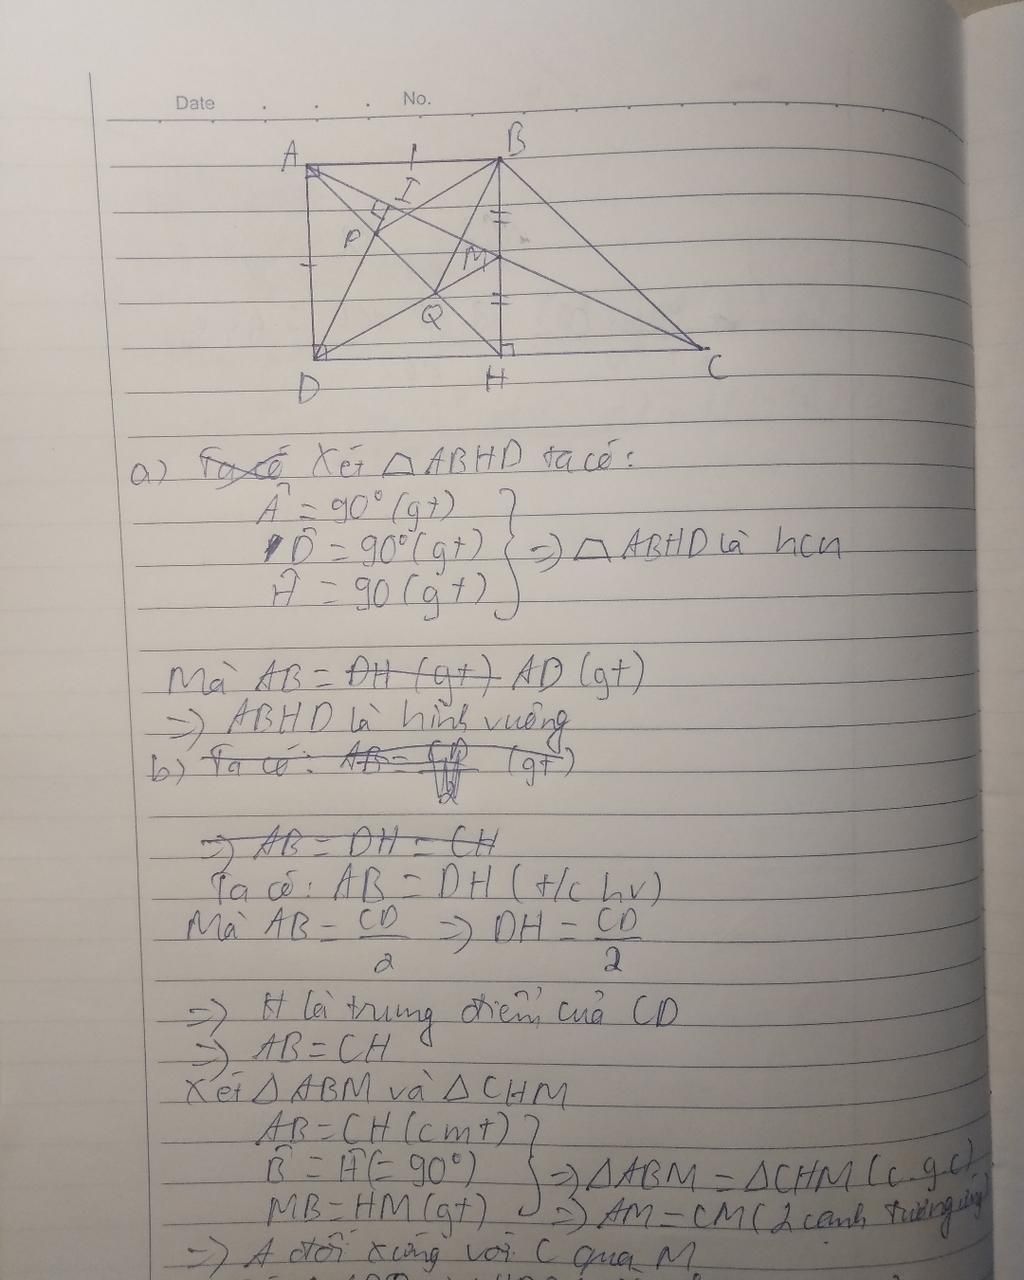 Date . . . No.
A B
I
P M
Q
D H C
a) Ta có Xét △ ABHD ta có:
Â = 90° (gt)
D̂ = 90° (gt) } => △ ABHD là hcn
Ĥ = 90 (gt)
Mà AB = DH (gt) AD (gt)
=> ABHD là hình vuông
b) Ta có: AB = (gt)
2
=> AB = DH = CH
Ta có: AB = DH (t/c hv)
Mà AB = CD/2 => DH = CD/2
=> H là trung điểm của CD
=> AB = CH
Xét △ ABM và △ CHM
AB = CH (cmt)
B̂ = Ĥ (= 90°) } => △ABM = △CHM (c.g.c)
MB = HM (gt) => AM = CM (2 cạnh tương ứng)
=> A đối xứng với C qua M